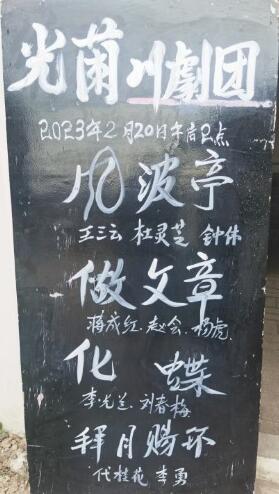 光菌川劇团
2023年2月20日午后2点
风波亭
王三云 杜灵芝 钟休
做文章
蒋成红.赵会.杨虎
化蝶
李光兰.刘春梅
拜月赐环
代桂花 李勇